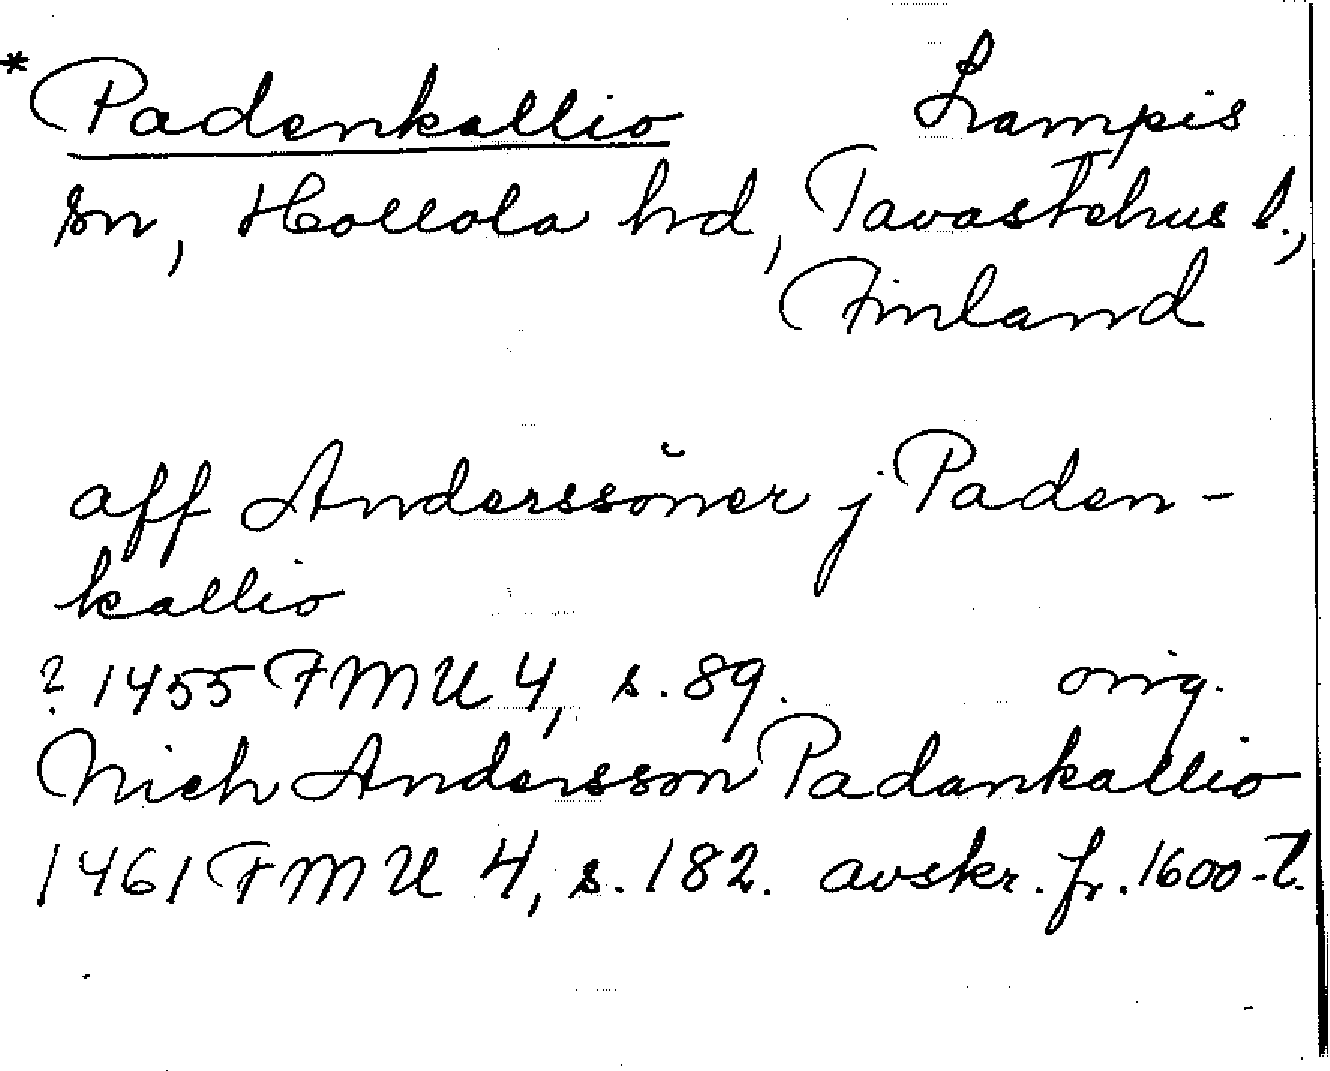 *Padenkallio Lampis
sn, Hollola hd, Tavastehus l.,
Finland
aff Anderssöner j Paden-
kallio
? 1455 FMU 4, s. 89. orig.
Nich Andersson Padankallio
1461 FMU 4, s. 182. avskr. fr. 1600-t.